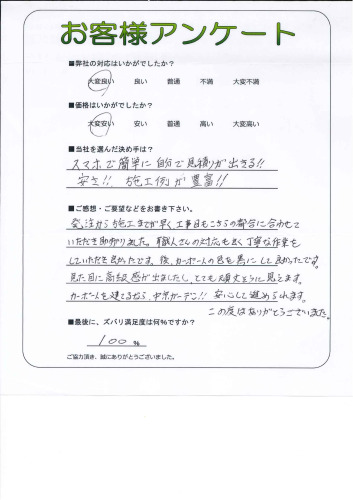 お客様アンケート
■弊社の対応はいかがでしたか？
大変良い 良い 普通 不満 大変不満
■価格はいかがでしたか？
大変安い 安い 普通 高い 大変高い
■当社を選んだ決め手は？
スマホで簡単に自分で見積りが出きる!!
安さ!! 施工例が豊富!!
■ご感想・ご要望などをお書き下さい。
発注から施工までが早く工事日もこちらの都合に合わせて
いただき助かりました。職人さんの対応も良く丁寧な作業を
していただき良かったです。後、カーポートの色を黒にして良かったです。
見た目に高級感が出ましたし、とても頑丈そうに見えます。
カーポートを建てるなら、ガーデン!! 安心して進められます。
この度はありがとうございました。
■最後に、ズバリ満足度は何%ですか？
100 %
ご協力頂き、誠にありがとうございました。